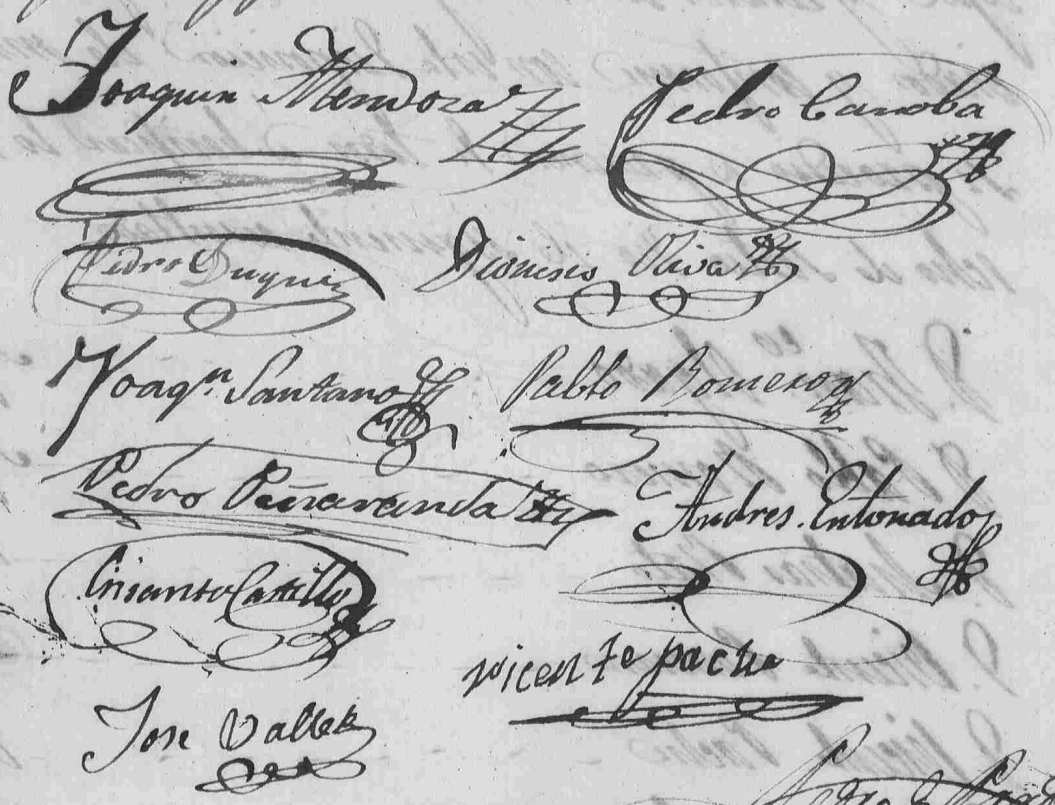 Joaquin Mendoza
Pedro Canoba
Pedro Duque
Dionisio Oliva
Joaqn Santano
Pablo Romero
Pedro Peñaranda
Andres Entonado
Crisanto Castillo
vicente pacha
Jose Valle